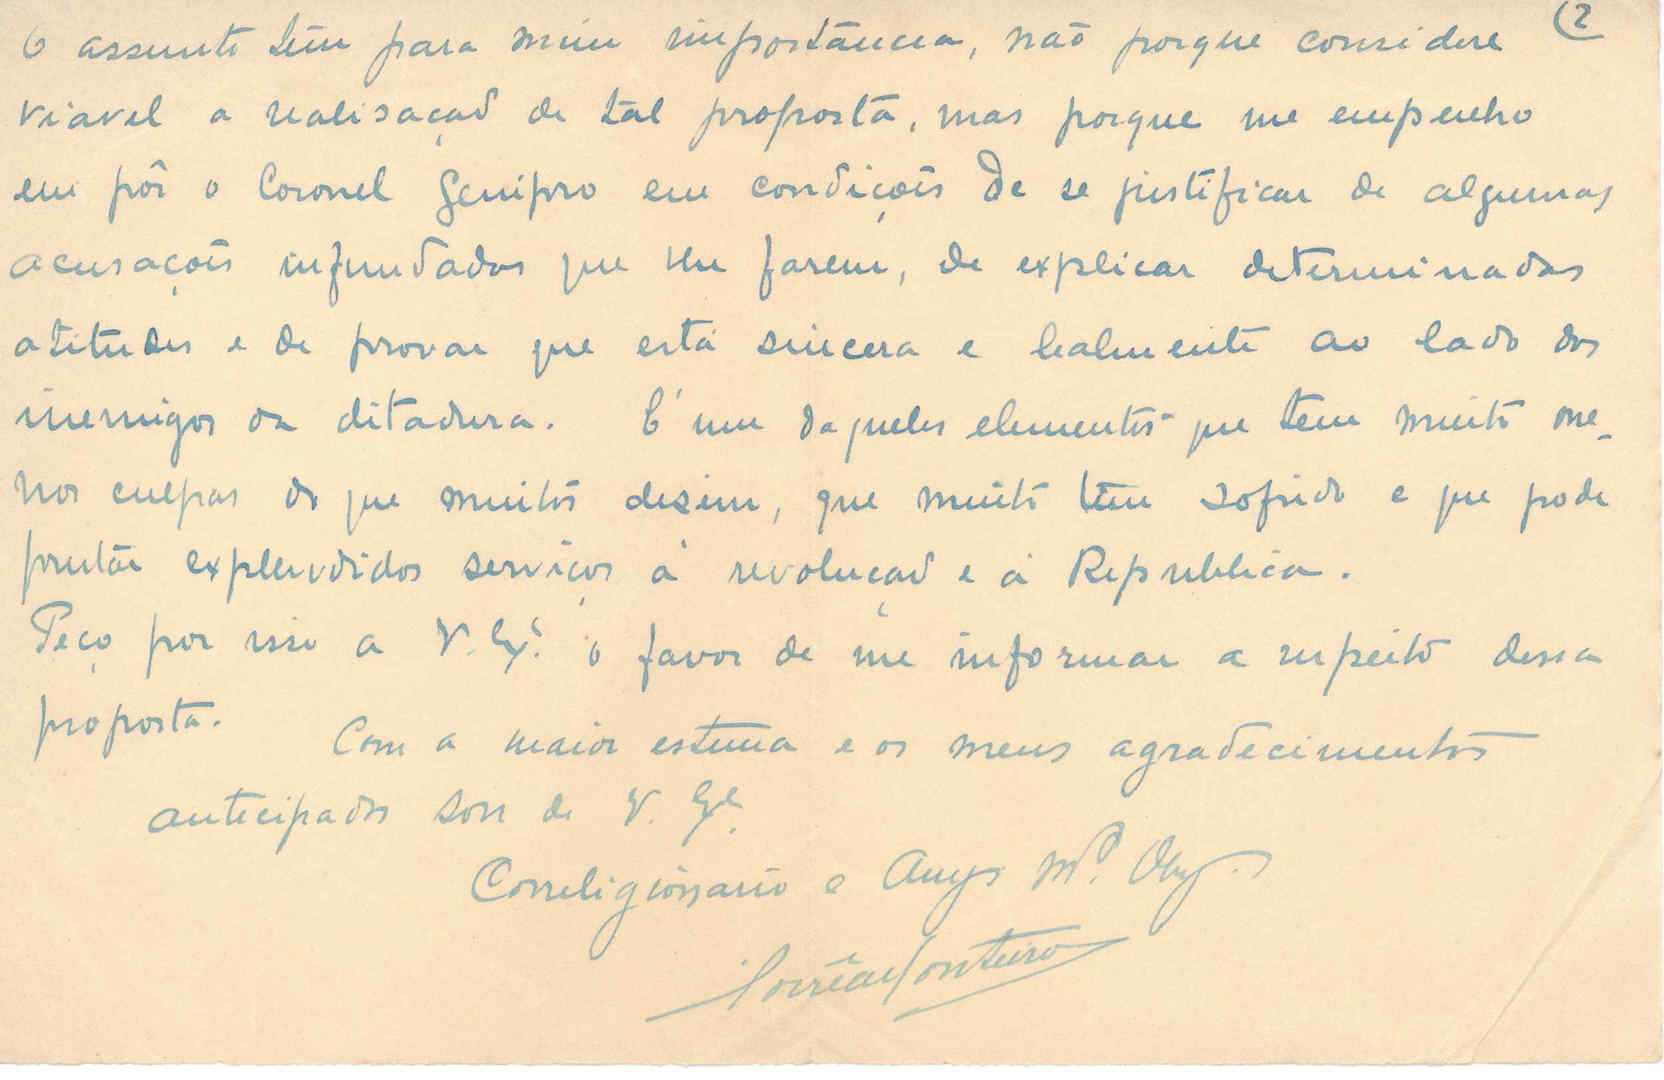 (2
O assunto têm para mim importância, não porque considere
viavel a realisação de tal proposta, mas porque me empenho
em pôr o Coronel Genipro em condições de se justificar de algumas
acusações infundadas que lhe fazem, de explicar determinadas
atitudes e de provar que está sincera e lealmente ao lado dos
inemigos da ditadura. É um daqueles elementos que tem muito me-
nos culpas do que muitos dizem, que muito têm sofrido e que pode
prestar explendidos serviços á revolução e á Republica.
Peço por isso a V. Exª. o favor de me informar a respeito dessa
proposta. Com a maior estima e os meus agradecimentos
antecipados sou de V. Exª.
Correligionario e Amgº Mº. Obrgº.
Corrêa Monteiro